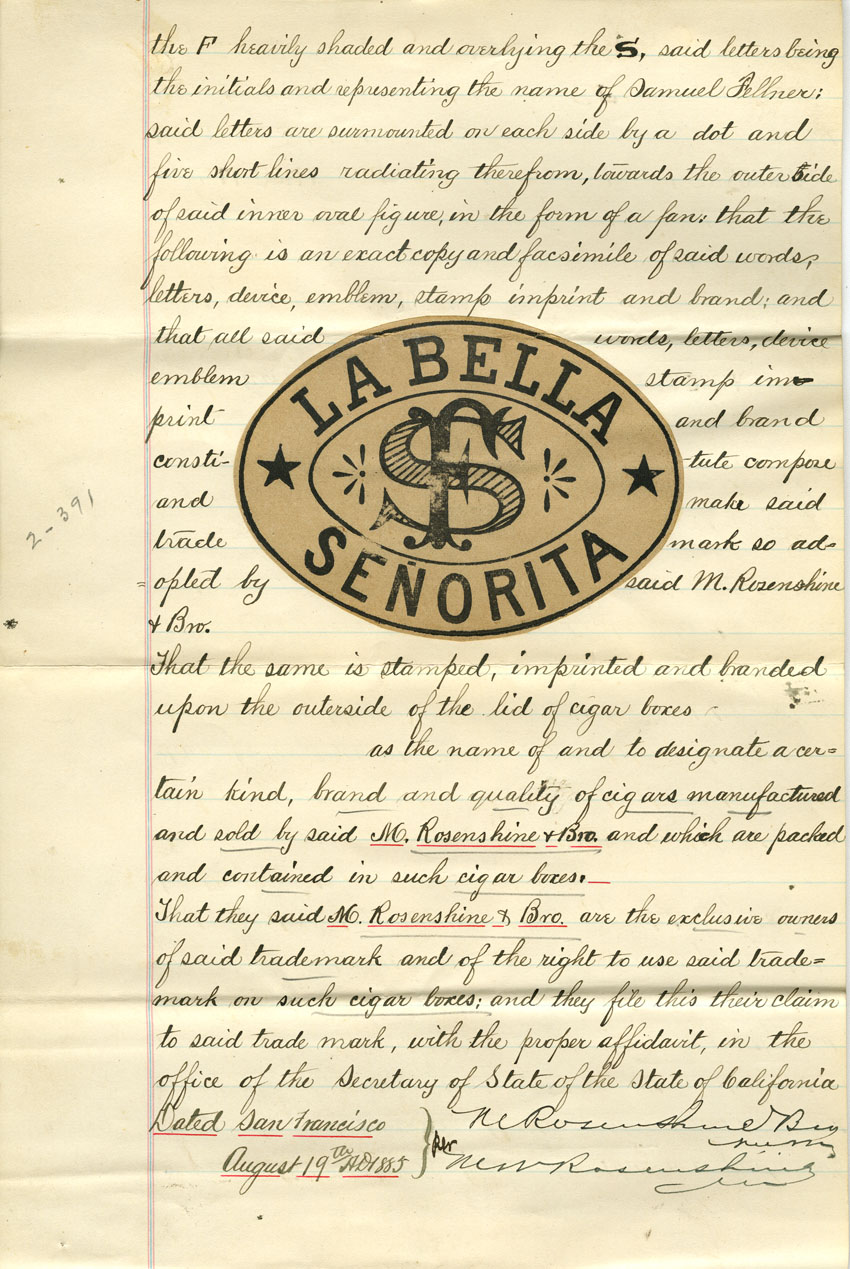 the F heavily shaded and overlying the S, said letters being
the initials and representing the name of Samuel Fellner:
said letters are surmounted on each side by a dot and
five short lines radiating therefrom, towards the outer side
of said inner oval figure, in the form of a fan: that the
following is an exact copy and facsimile of said words,
letters, device, emblem, stamp imprint and brand; and
that all said words, letters, device
emblem stamp im-
print and brand
consti- -tute compose
and make said
trade mark so ad-
opted by said M. Rosenshine
& Bro.
LA BELLA
FS
SEÑORITA
2-391
That the same is stamped, imprinted and branded
upon the outerside of the lid of cigar boxes
as the name of and to designate a cer=
tain kind, brand and quality of cigars manufactured
and sold by said M. Rosenshine & Bro. and which are packed
and contained in such cigar boxes.
That they said M. Rosenshine & Bro. are the exclusive owners
of said trademark and of the right to use said trade=
mark on such cigar boxes; and they file this their claim
to said trade mark, with the proper affidavit, in the
office of the Secretary of State of the State of California
Dated San Francisco
August 19th AD 1885
M Rosenshine & Bro
per M W Rosenshine